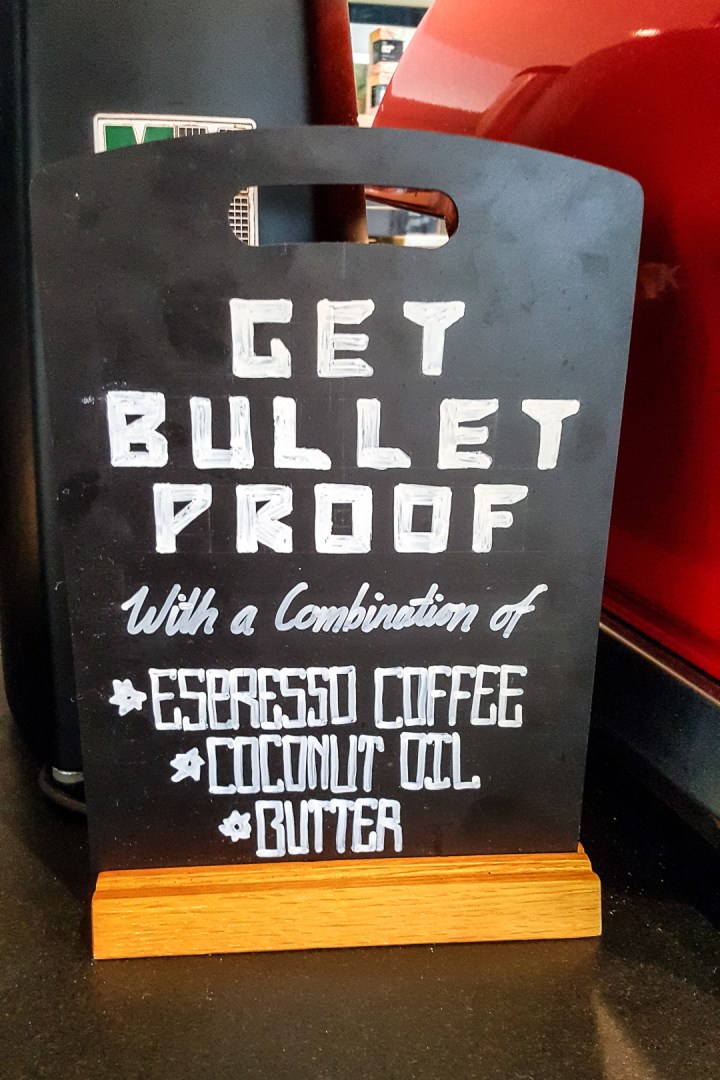 GET
BULLET
PROOF
With a Combination of
*ESPRESSO COFFEE
*COCONUT OIL
*BUTTER